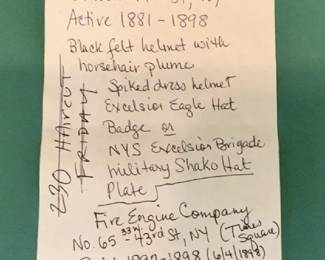 St, NY
Active 1881-1898
Black felt helmet with
horsehair plume
Spiked dress helmet
Excelsior Eagle Hat
Badge or
NYS Excelsior Brigade
military Shako Hat
Plate
Fire Engine Company
No. 65 33 W. 43rd St, NY (Times
Square)
1898 (6/4/1898)
230 Haircut
FRIDAY